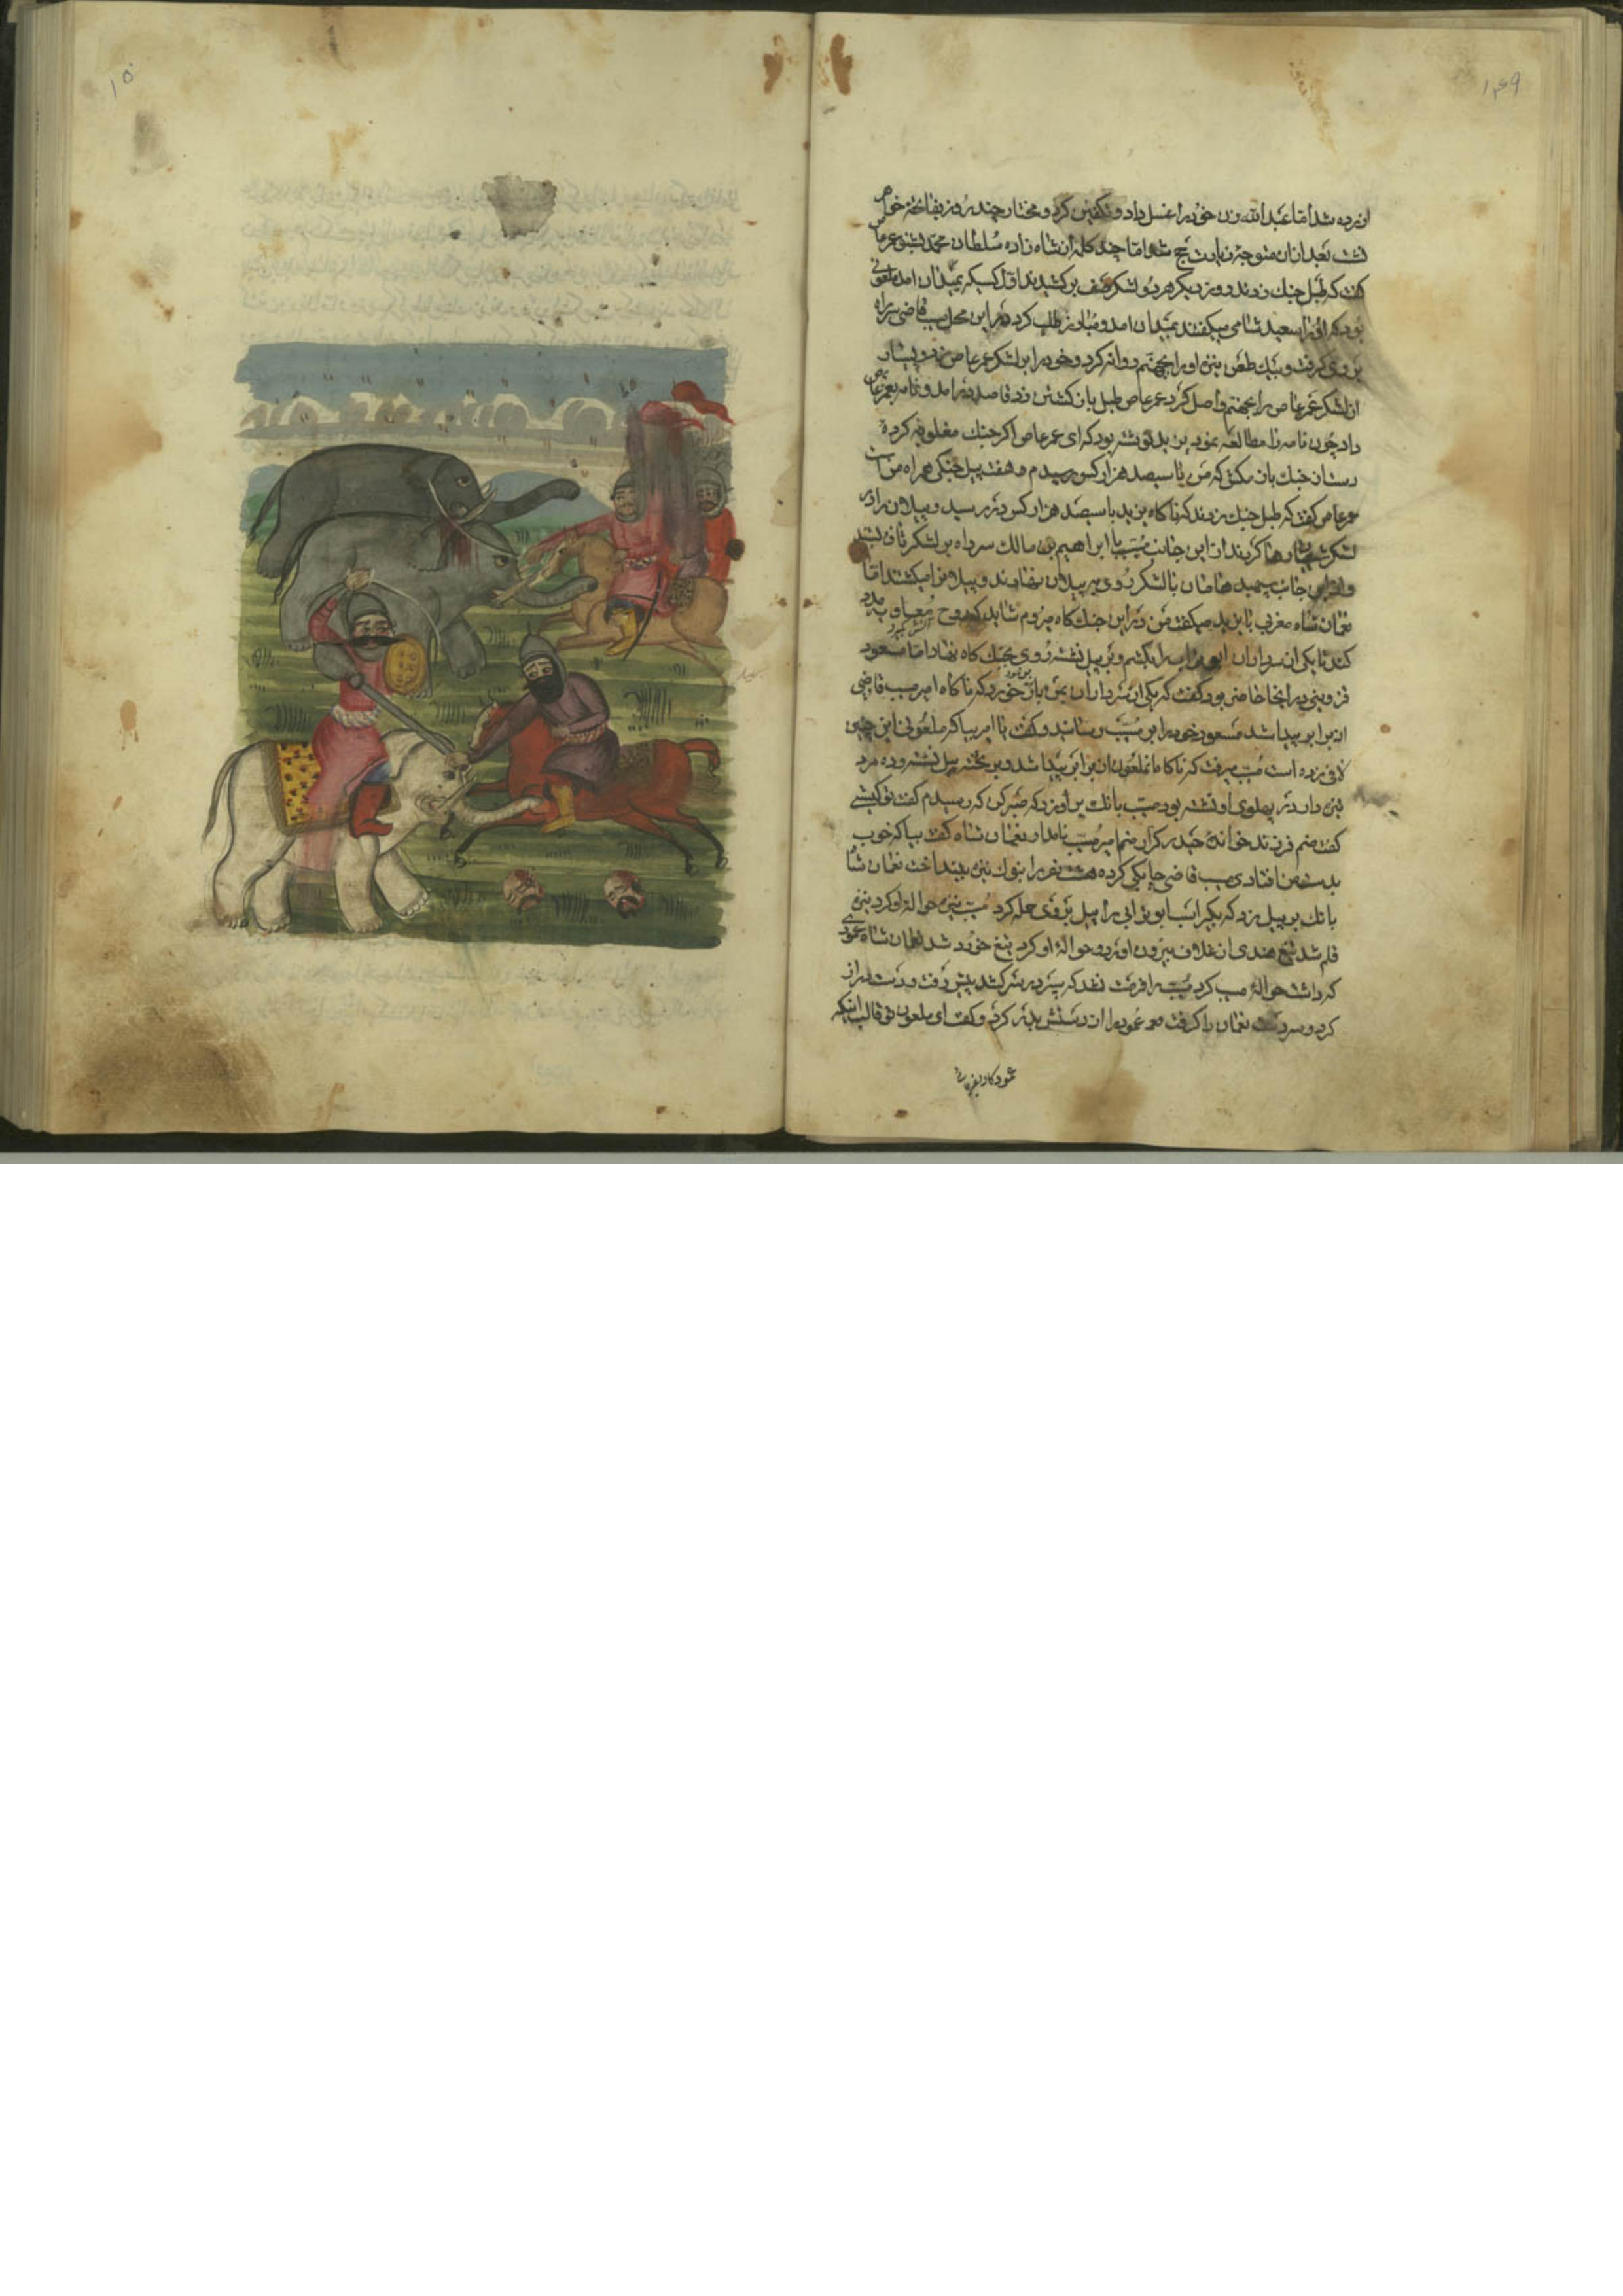 ۱۴۹
ازرده شد اما عبدالله زن خود را غسل داد و تکفین کرد و مختار چند روز بفاتحه خاص
نشست بعد ازان متوجه زیارت حج شد اما چند کلمه از شاه زاده سلطان محمد بشنو عمر عاص
کفت که طبل جنك زدند و روز دیکر هر دو لشکر صف بر کشیدند اول کسیکه بمیدان امد ملعونی
بود که او را سعید شامی میکفتند بمیدان امد و مبارز طلب کرد در این محل مسیب قاضی سر راه
بر وی کرفت و بیك طعن نیزه او را بجهنم روانه کرد و خود را بر لشکر عمر عاص زد و بسیار
از لشکر عمر عاص را بجهنم واصل کرد عمر عاص طبل باز کشتن زد قاصد در امد و نامه بعمر عاص
داد چون نامه را مطالعه نمود یزید نوشته بود که ای عمر عاص اکر جنك مغلوبه کرده
دست از جنك باز مکش که من با سیصد هزار کس رسیدم و هفت پیل جنکی همراه من است
عمر عاص کفت که طبل جنك زدند که ناکاه یزید با سیصد هزار کس در رسید و پیلان را در
لشکر رها کردند از این جانب مسیب با ابراهیم بن مالك سر راه بر لشکر ایشان بستند
و از این جانب با لشکر روی بر پیلان نهادند و پیلانرا میکشتند اما
نعمان شاه مغربی با یزید میکفت من در این جنك کاه میروم شاید که روح معاویه مدد
کند تا یکی از سرداران ابوتراب را بکشم و بر پیل نشسته روی بجنك کاه نهاد اما مسعود
قزوینی در انجا حاضر بود کفت که یکی از سرداران یزید خورد که ناکاه امیر مسیب قاضی
از برابر پیدا شد مسعود خود را بر مسیب رسانید و کفت یا امیر بیا که ملعونی این چنین
لافی زده است مسیب میرفت که ناکاه ان ملعون از برابر پیدا شد و بر تخته پیل نشسته و ده مرد
نیزه دار در پهلوی او نشسته بود مسیب بانك بر او زد که صبر کن که رسیدم کفت تو کیستی
کفت منم فرزند خوانده حیدر کرار منم امیر مسیب نامدار نعمان شاه کفت بیا که خوب
بدست من افتادی مسیب قاضی چابکی کرده هشت نفر را بنوك نیزه بینداخت نعمان شاه
بانك بر پیل زد که بکیر اسب ابوترابی را پیل بر وی حمله کرد مسیب نیزه حواله او کرد نیزه
قلم شد تیغ هندی از غلاف بیرون اورد و حواله او کرد تیغ خورد شد نعمان شاه عمودی
که داشت حواله مسیب کرد مسیب را فرصت نشد که سپر در سر کشد پیش رفت و دست دراز
کرد و سر دست نعمان را کرفت عمود را از دستش بدر کرد و کفت ای ملعون تو قالب اینکه
عمود کار بفرمائی
۱۵۰